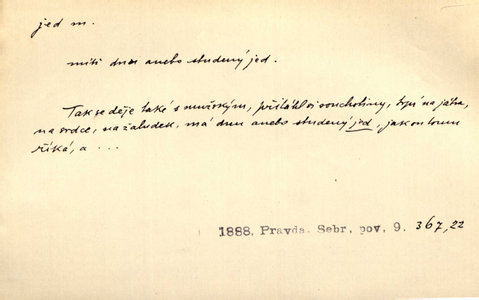 jed m.
míti dnu anebo studený jed.
Tak se děje také s mužským, přitáhl si souchotiny, trpí na játra,
na srdce, na žaludek, má dnu anebo studený jed, jak on tomu
říká, a ...
1888. Pravda. Sebr. pov. 9. 367,22